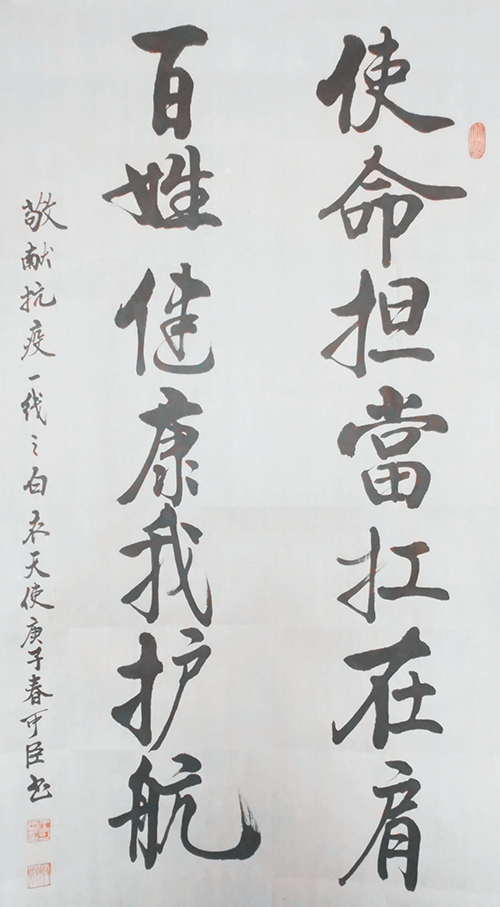 使命担當扛在肩
百姓健康我护航
敬献抗疫一线之白衣天使庚子春可臣书